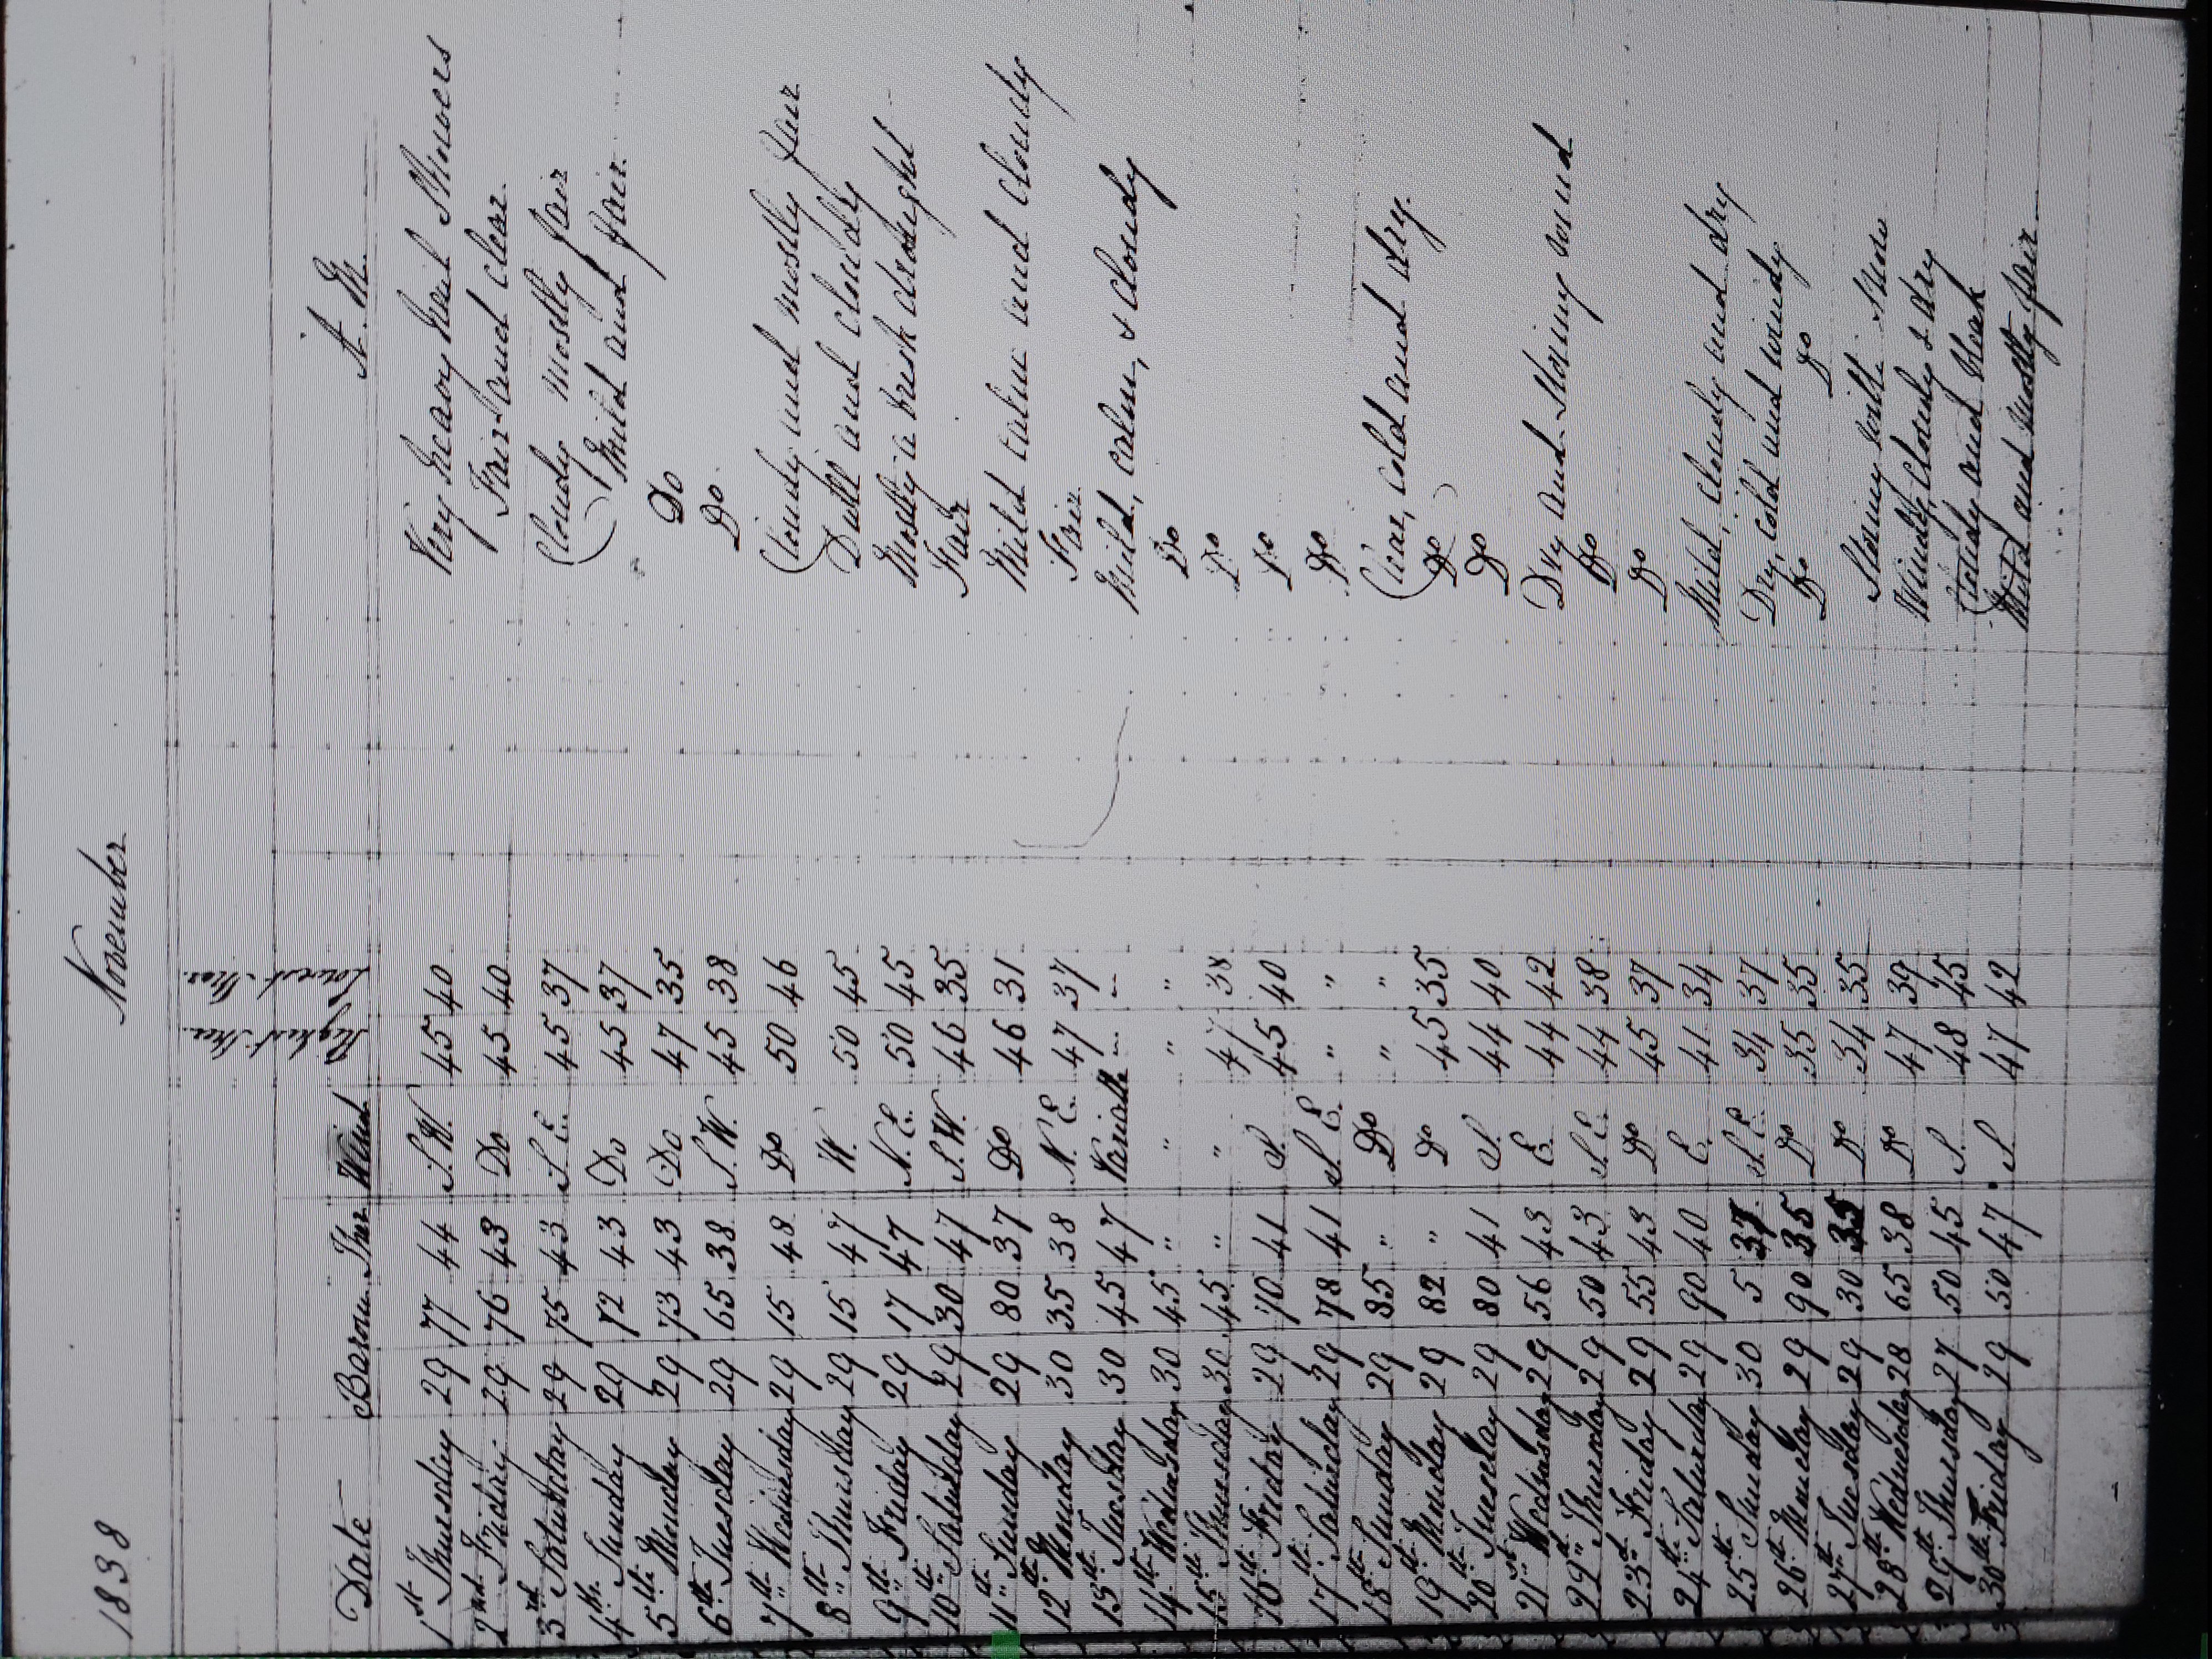 1838 November
Highest Ther.
Lowest Ther.
Date Barom Ther Wind A. M.
1st Thursday 29 77 44 S.W. 45 40 Very heavy hail Showers
2nd Friday 29 76 43 Do 45 40 Fair and clear.
3rd Saturday 29 75 43 S.E. 45 37 Cloudy mostly fair
4th Sunday 29 72 43 Do 45 37 Mild and fair.
5th Monday 29 73 43 Do 47 35 Do
6th Tuesday 29 65 38 S.W. 45 38 Do
7th Wednesday 29 15 48 Do 50 46 Cloudy and mostly fair
8th Thursday 29 15 47 W. 50 45 Dull and cloudy
9th Friday 29 17 47 N.E. 50 45 Mostly a brisk drought
10th Saturday 29 30 47 S.W. 46 35 Fair
11th Sunday 29 80 37 Do 46 31 Mild calm and cloudy
12th Monday 30 35 38 N.E. 47 37 Fair.
13th Tuesday 30 45 47 Variable " " Mild, calm, & cloudy
14th Wednesday 30 45 " " " " Do
15th Thursday 30 45 " " 47 38 Do
16th Friday 29 70 41 S. 45 40 Do
17th Saturday 29 78 41 S.E. " " Do
18th Sunday 29 85 " Do " " Clear, cold and dry.
19th Monday 29 82 " Do 45 35 Do
20th Tuesday 29 80 41 S. 44 40 Do
21st Wednesday 29 56 43 E. 44 42 Dry and Stormy wind
22d Thursday 29 50 43 S.E. 44 38 Do
23d Friday 29 55 43 Do 45 37 Do
24th Saturday 29 90 40 E. 41 34 Mild, cloudy and dry
25th Sunday 30 5 37 S.E. 34 37 Dry, cold and windy
26th Monday 29 90 35 Do 35 35 Do Do
27th Tuesday 29 30 35 Do 34 35 Stormy with Snow
28th Wednesday 28 65 38 Do 47 39 Windy, cloudy & dry
29th Thursday 27 50 45 S. 48 45 Cloudy and bleak
30th Friday 29 50 47 S 47 42 Mild and mostly fair